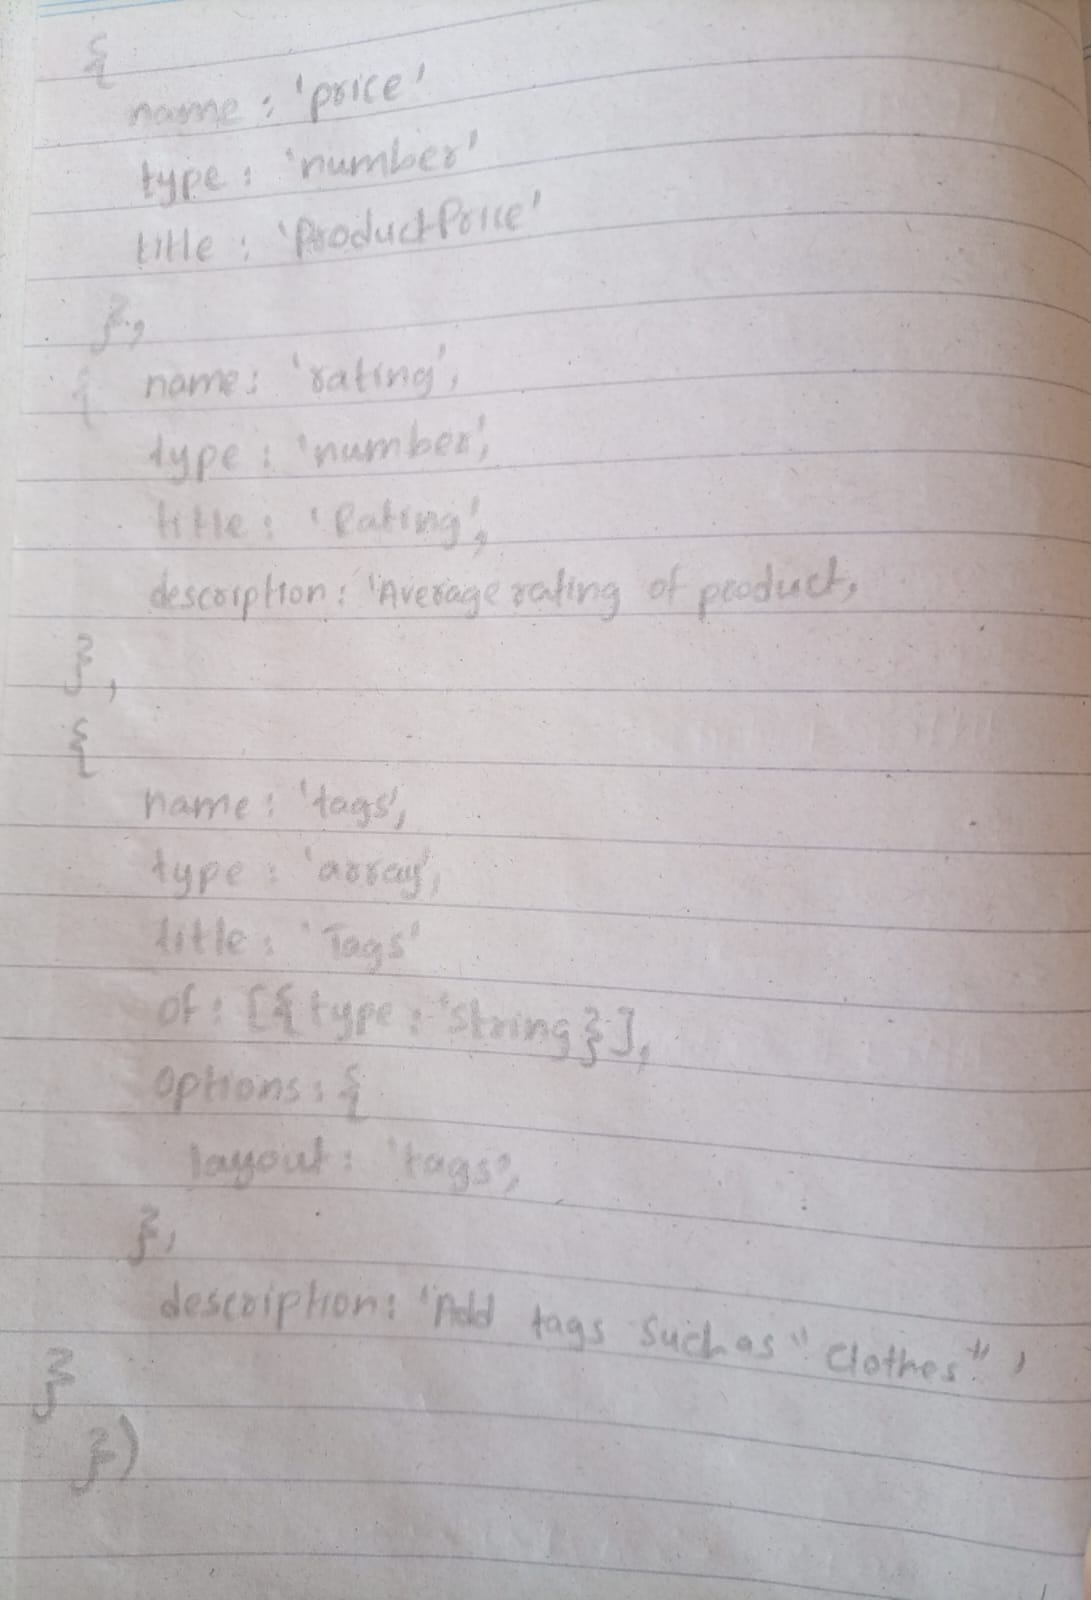 {
name : 'price'
type : 'number'
title : 'ProductPrice'
},
{ name : 'rating',
type : 'number',
title : 'Rating',
description : 'Average rating of product,
},
{
name : 'tags',
type : 'array',
title : 'Tags'
of : [{ type : 'String }],
options : {
layout : 'tags',
},
description : 'Add tags Such as "Clothes" '
}
})